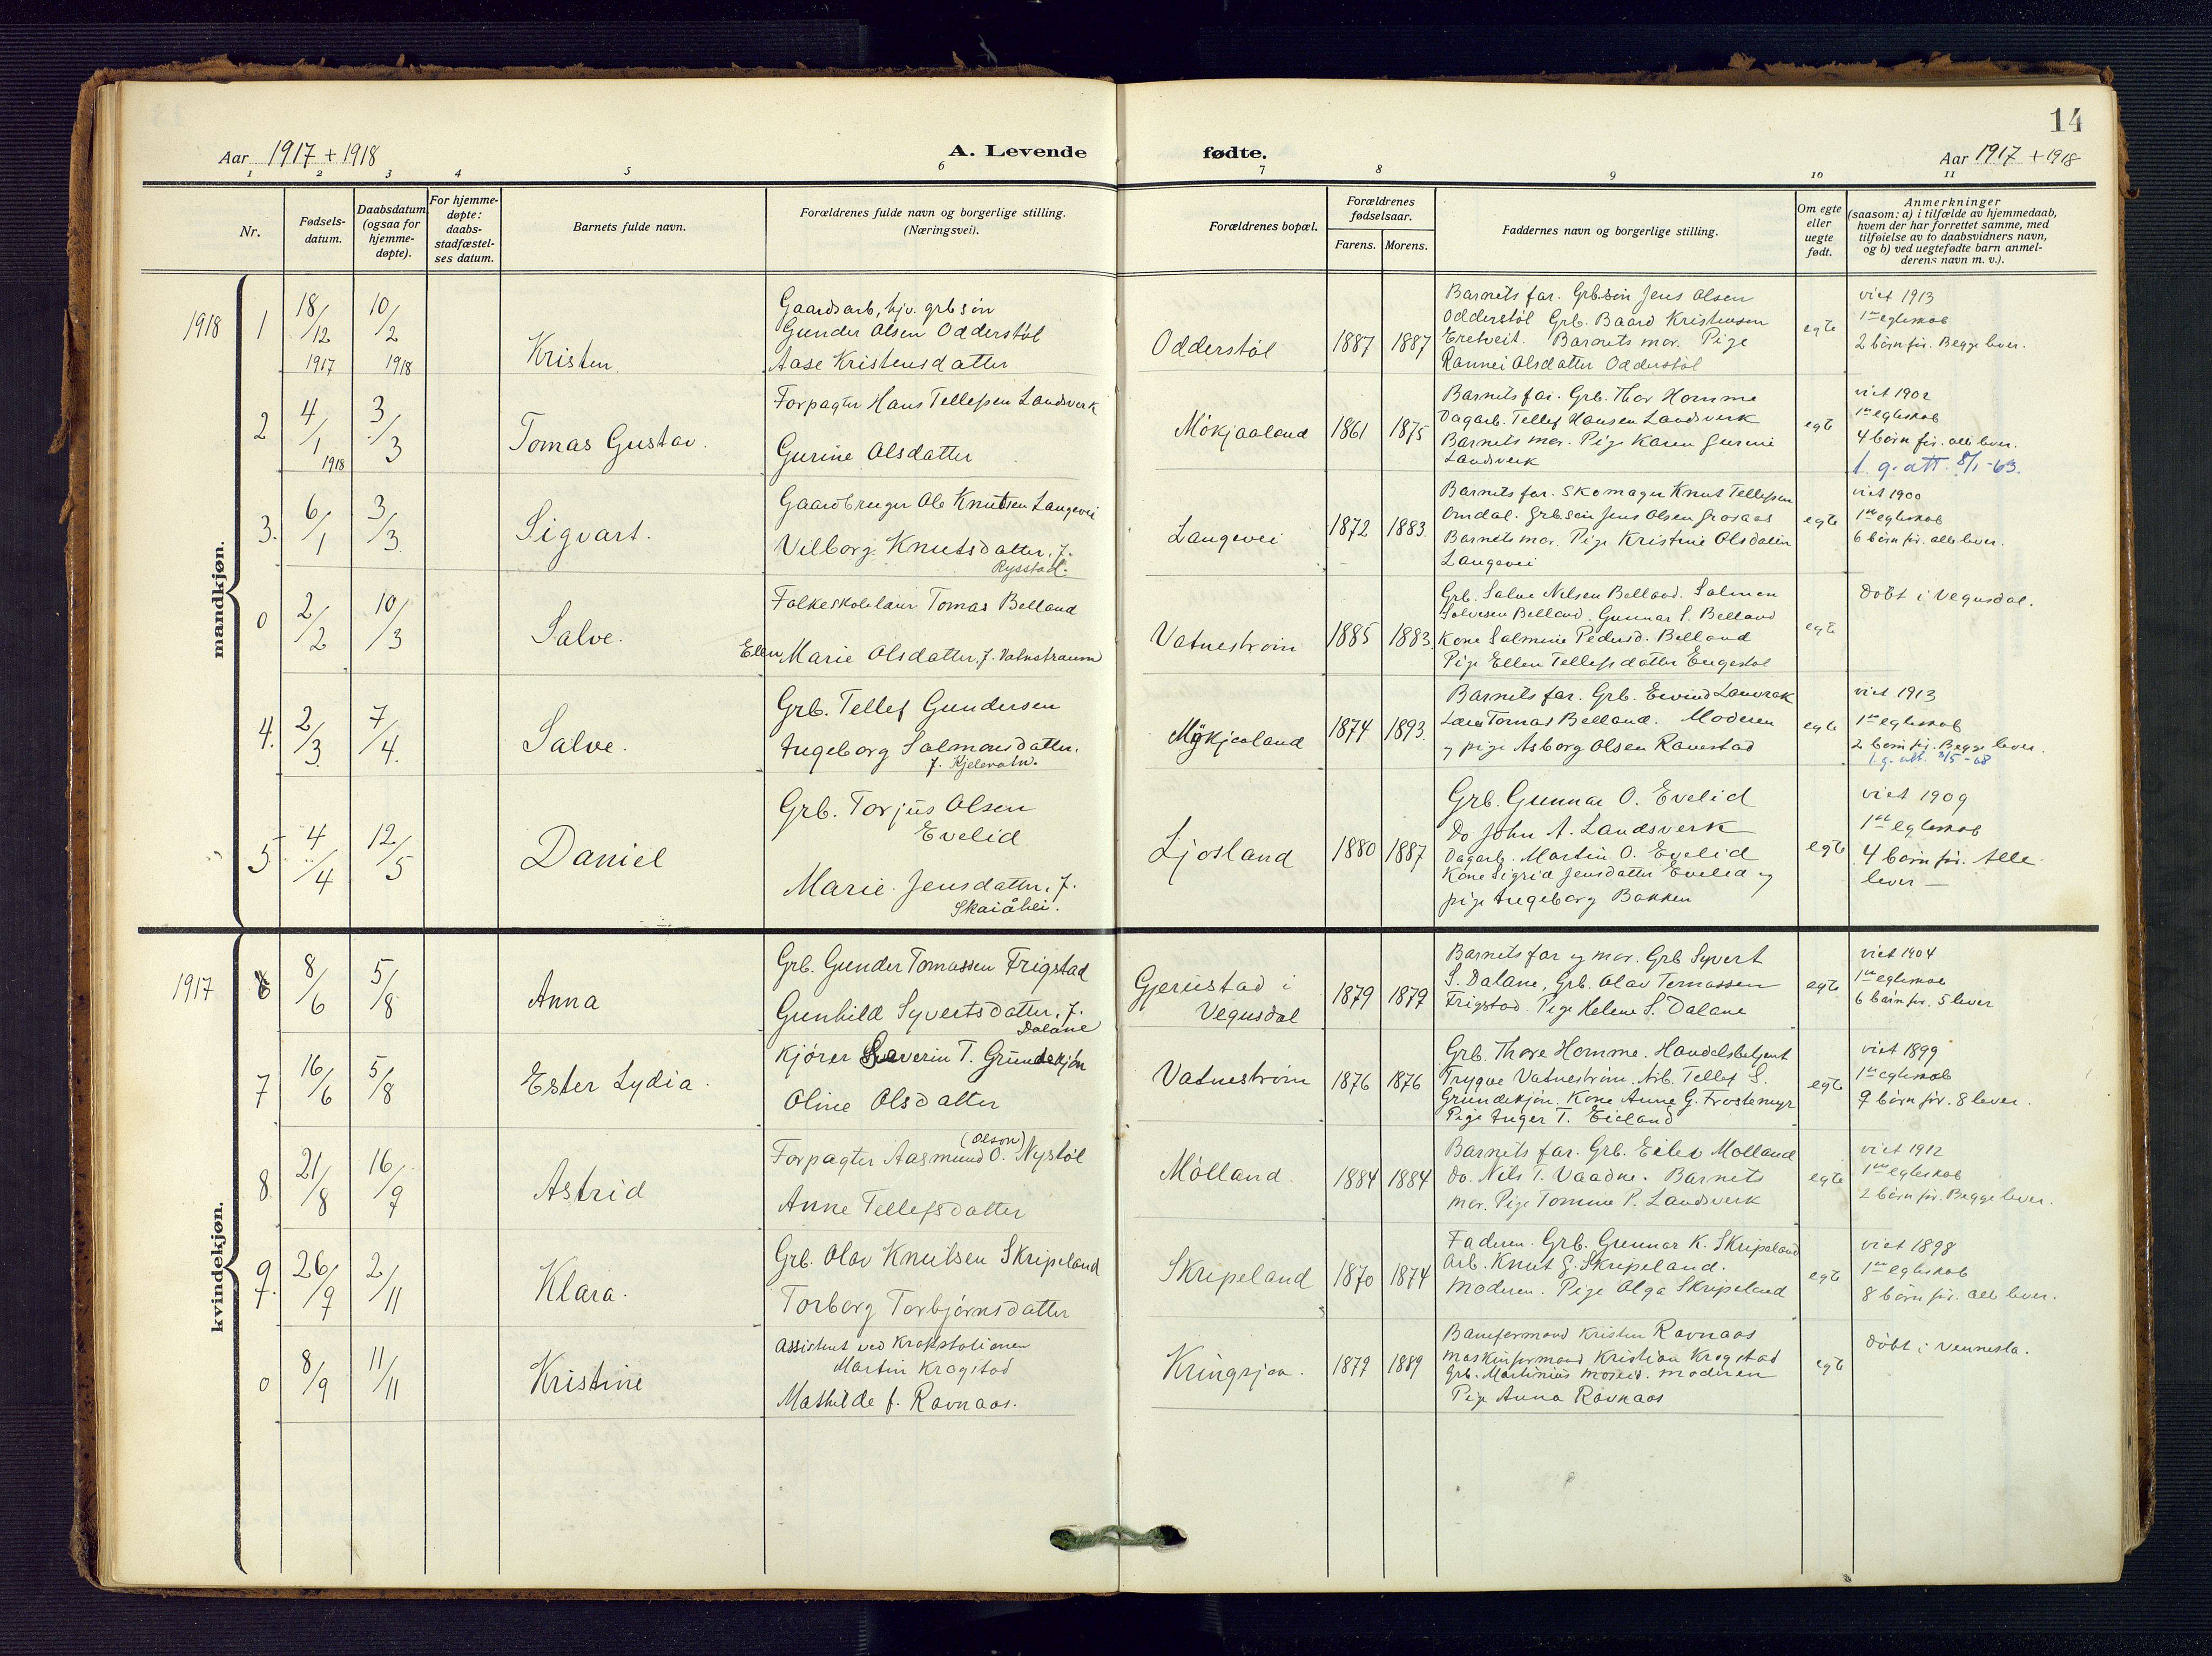 14
Aar 1917 + 1918
A. Levende
fødte.
Aar 1917 + 1918
1 2 3 4 5 6 7 8 9 10 11
Nr.
Fødsels-
datum.
Daabsdatum
(ogsaa for
hjemme-
døpte).
For hjemme-
døpte:
daabs-
stadfæstel-
ses datum.
Barnets fulde navn.
Forældrenes fulde navn og borgerlige stilling.
(Næringsvei).
Forældrenes bopæl.
Forældrenes
fødselsaar.
Farens. Morens.
Faddernes navn og borgerlige stilling.
Om egte
eller
uegte
født.
Anmerkninger
(saasom: a) i tilfælde av hjemmedaab,
hvem der har forrettet samme, med
tilføielse av to daabsvidners navn,
og b) ved uegtefødte barn anmel-
derens navn m. v.).
mandkjøn.
1918
1
18/12 1917
10/2 1918
Kristen.
Gaardsarb, hjv. grbsøn
Gunder Olsen Odderstøl
Aase Kristensdatter
Odderstøl
1887 1887
Barnets far. Grb.søn Jens Olsen
Odderstøl Grb. Baard Kristensen
Eretveit. Barnets mor. Pige
Rannei Olsdatter Odderstøl
egte
viet 1913
1ste egteskab
2 børn før. Begge lever.
2
4/1 1918
3/3
Tomas Gustav.
Forpagter Hans Tellefsen Landsverk
Gurine Olsdatter
Mökjaaland
1861 1875
Barnets far. Grb. Thor Homme
Dagarb. Tellef Hansen Landsverk
Barnets mor. Pige Karen Gurine
Landsverk
egte
viet 1902
1ste egteskab
4 børn før. alle lever.
1 g. att. 8/1-63.
3.
6/1
3/3
Sigvart.
Gaardbruger Ole Knutsen Langevei
Vilborg Knutsdatter, f.
Rysstad.
Langevei
1872 1883.
Barnets far. Skomager Knut Tellefsen
Omdal. Grb.søn Jens Olsen Grosaas
Barnets mor. Pige Kristine Olsdatter
Langevei
egte
viet 1900
1ste egteskab
6 børn før. alle lever.
0
2/2
10/3
Salve.
Folkeskolelærer Tomas Belland
Ellen Marie Olsdatter, f. Vatnstraum
Vatneström
1885 1883.
Grb. Salve Nilsen Belland. Salmon
Salvesen Belland. Gunnar S. Belland
Kone Salmine Pedersd. Belland
Pige Ellen Tellefsdatter Engestøl
egte
Døbt i Vegusdal.
4.
2/3
7/4.
Salve.
Grb. Tellef Gundersen
Ingeborg Salmonsdatter.
f. Kjelevatn.
Mykjaaland
1874 1893.
Barnets far. Grb. Eivind Lauvrak
Lærer Tomas Belland. Moderen
og pige Asborg Olsen Ranestad
egte
viet 1913
1ste egteskab
2 børn før. Begge lever.
1. g. att. 3/5-68
5
4/4
12/5
Daniel
Grb. Torjus Olsen
Evelid
Marie Jensdatter, f.
Skaiåhei.
Ljosland
1880 1887
Grb. Gunnar O. Evelid
Do John A. Landsverk
Dagarb. Martin O. Evelid
Kone Sigrid Jensdatter Evelid og
pige Ingeborg Bakken
egte
viet 1909
1ste egteskab
4 børn før. Alle
lever —
kvindekjøn.
1917
6
8/6
5/8
Anna
Grb. Gunder Tomassen Frigstad
Gunhild Syvertsdatter, f.
Dalane
Gjerustad i
Vegusdal
1879 1879
Barnets far og mor. Grb Syvert
S. Dalane, Grb. Olav Tomassen
Frigstad. Pige Helene S. Dalane
egte
viet 1904
1ste egteskab
6 børn før. 5 lever
7
16/6
5/8
Ester Lydia.
Kjører Severin T. Grundekjøn
Oline Olsdatter
Vatneström
1876 1876
Grb. Thore Homme. Handelsbetjent
Trygve Vatneström. Arb. Tellef S.
Grundekjøn. Kone Anne G. Frostemyr
Pige Inger T. Eieland
egte
viet 1899
1ste egteskab
9 børn før. 8 lever.
8
21/8
16/9
Astrid
(Olson)
Forpagter Aasmund O. Nystøl
Anne Tellefsdatter
Mölland.
1884 1884
Barnets far. Grb. Eilev Mölland
Do. Nils T. Vaadne. Barnets
mor. Pige Tomine P. Landsverk
egte
viet 1912
1ste egteskab
2 børn før. Begge lever.
9.
26/9
2/11
Klara.
Grb. Olav Knutsen Skripeland
Torborg Torbjørnsdatter
Skripeland
1870 1874
Faderen. Grb. Gunnar K. Skripeland
Arb. Knut G. Skripeland.
Moderen. Pige Olga Skripeland
egte
viet 1898
1ste egteskab
8 børn før. alle lever.
0
8/9
11/11
Kristine
Assistent ved Kraftstationen
Martin Krogstad
Mathilde f. Ravnaas.
Kringsjaa.
1879 1889
Baneformand Kristen Ravnaas
Maskinformand Kristian Krogstad
Grb. Martinius Moseid. Moderen
Pige Anna Ravnaas
egte
Døbt i Vennesla.